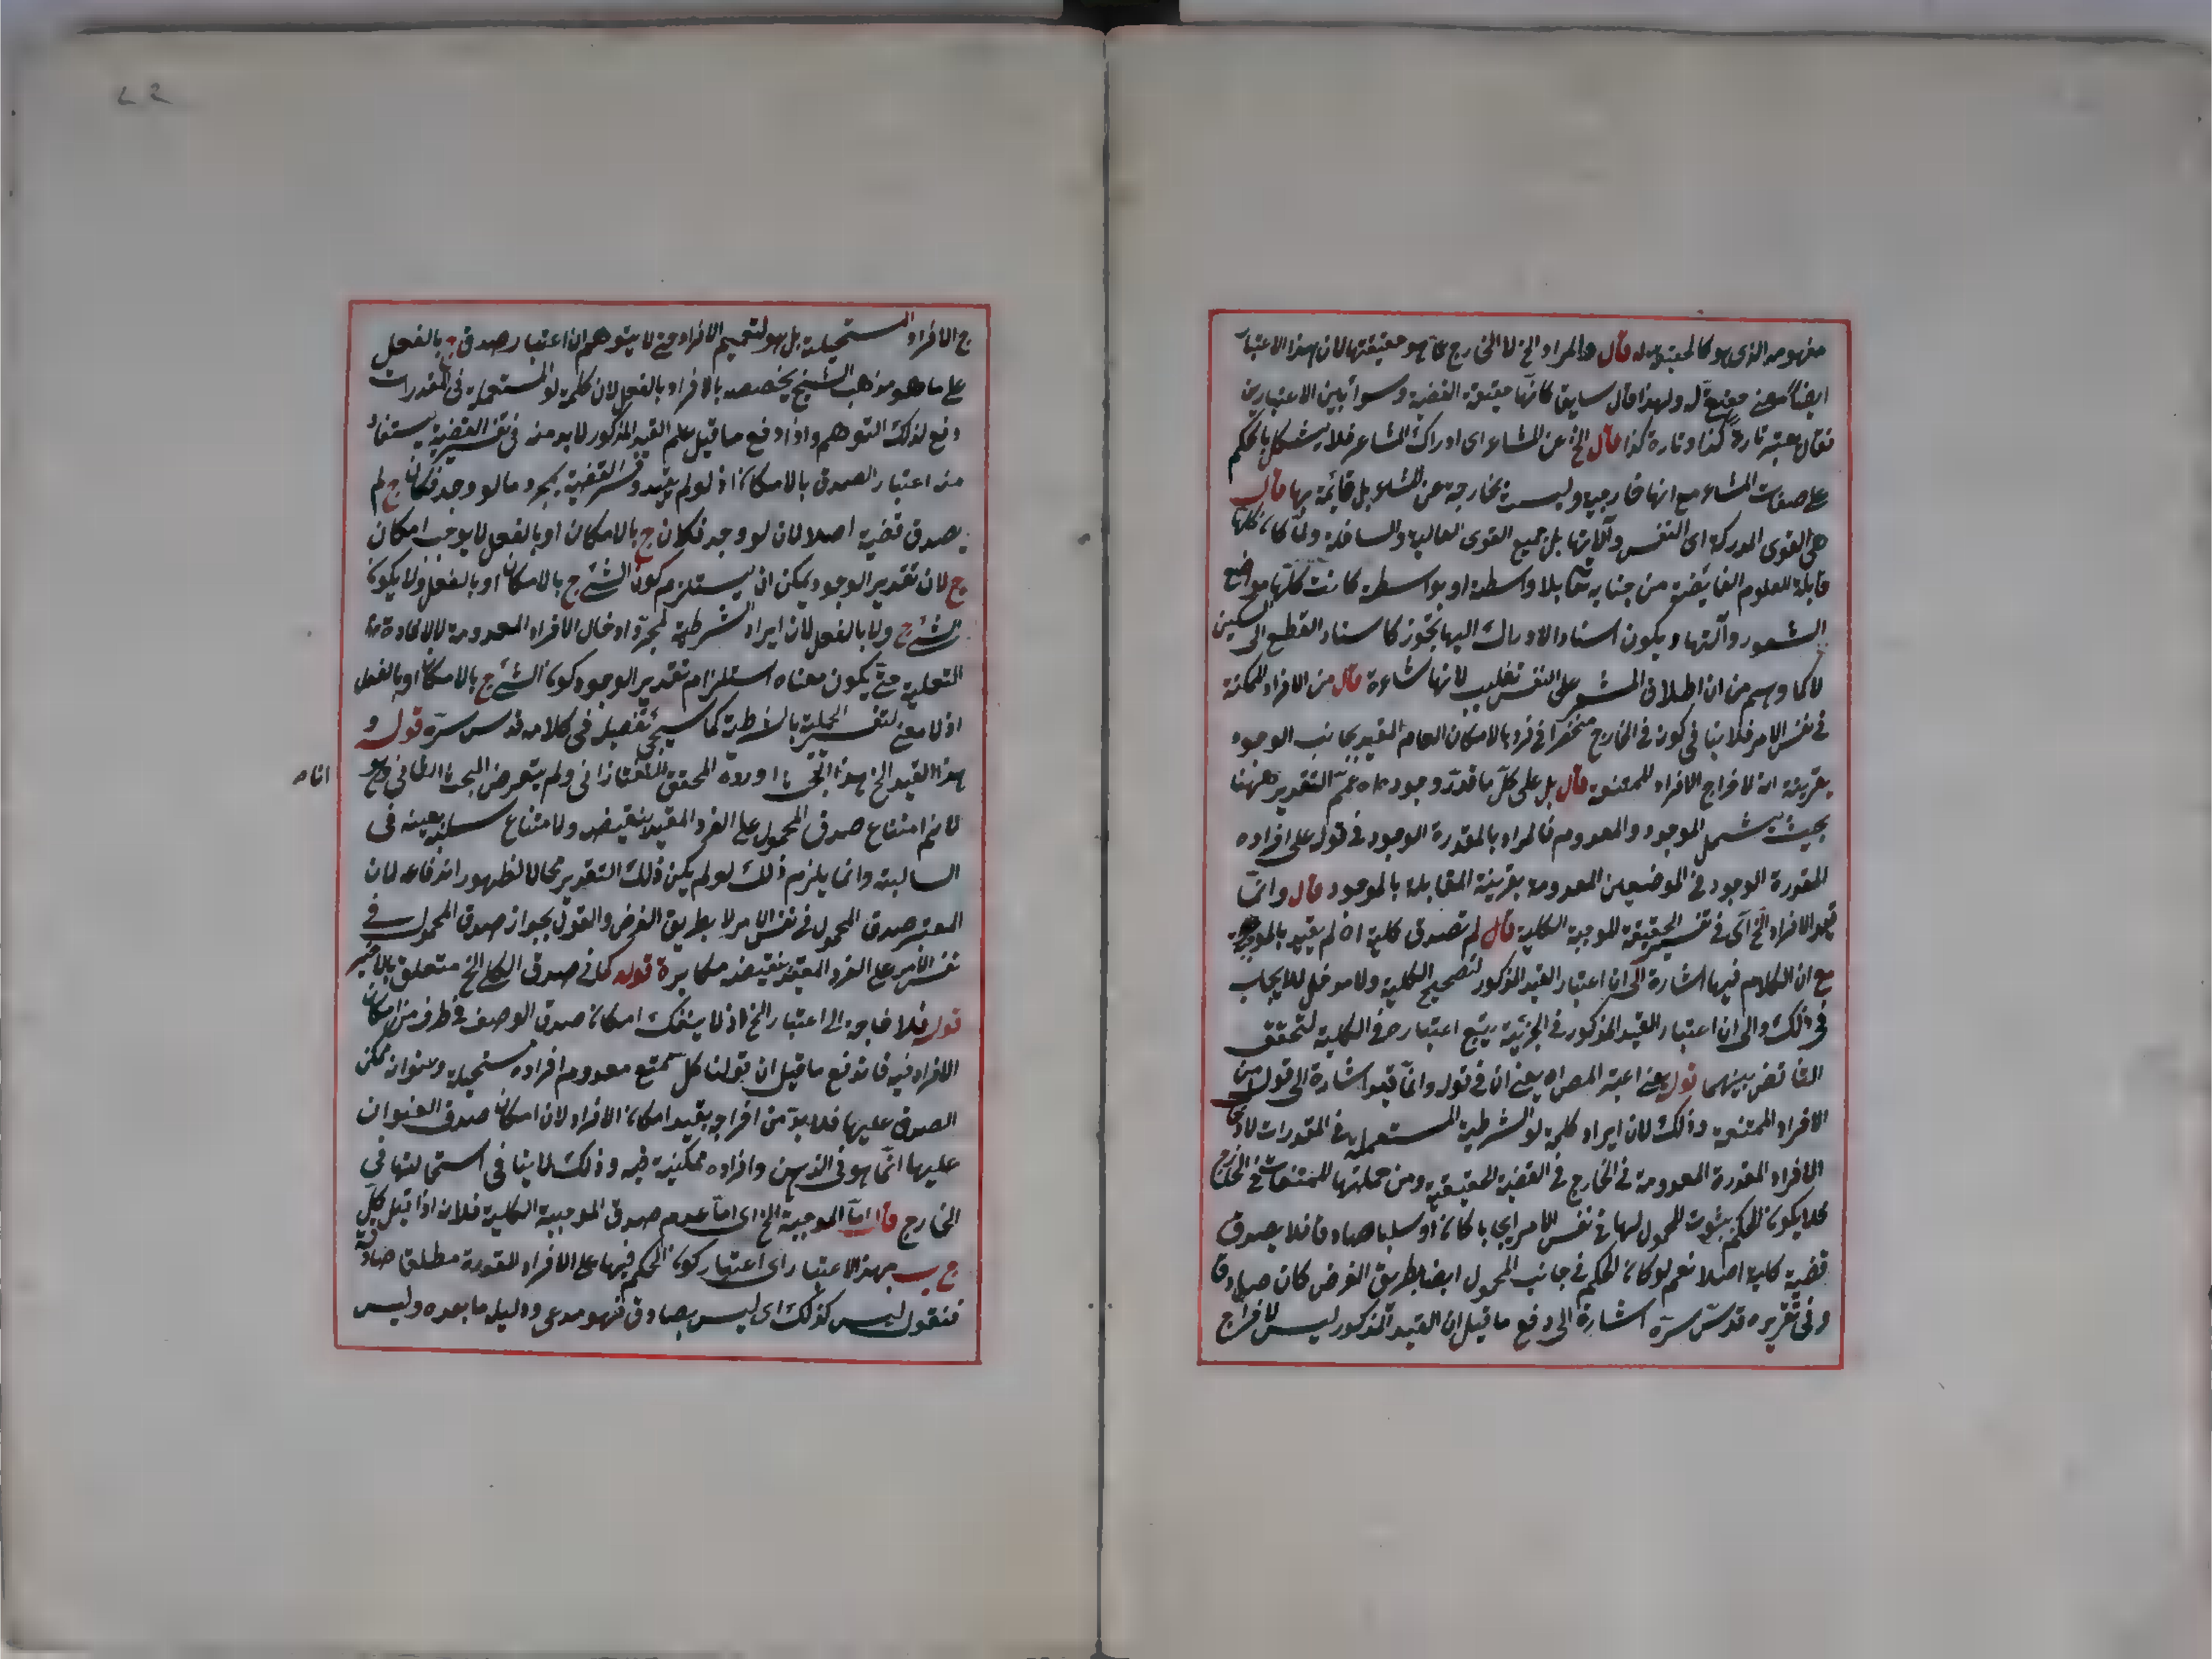 مفهومه الذى هو كالحقيقة له قال والمراد الخ لا الخارج عما هو حقيقتها لان هذا الاعتبار
ايضا معنى ولهذا قال سابقا كانها حقيقة القضية وسوا بين الاعتبارين
فقال يعتبر تارة كذا وتارة كذا قال الخ عن المشاعر اى ادراك المشاعر فلا يشكل بالحكم
على صفات المشاعر مع انها خارجية وليست بخارجة عن المشاعر بل قائمة بها قال
هى القوى المدركة اى النفس وآلاتها بل جميع القوى العالية والسافلة ولما كان كلها
قابلة للعلوم الفائضة من جنابه تعا بلا واسطة او بواسطة كانت كلها مواضع
الشعور وآلتها ويكون اسناد الادراك اليها تجوز كاسناد القطع الى السكين
لا كما وهم من ان اطلاق المشعر على النفس تغليب لانها شاعرة قال من الافراد الممكنة
فى نفس الامر فلا ينافى كونه فى الخارج منحصرا فى فرد بالامكان العام المقيد بجانب الوجود
بقرينة انه لاخراج الافراد الممتنعة قال بل على كل ما قدر وجوده اه عمم التقدير ههنا
بحيث يشمل الموجود والمعدوم فالمراد بالمقدرة الوجود فى قوله على افراده
المقدرة الوجود فى الموضعين المعدومة بقرينة المقابلة بالموجود قال وانما
قيد الافراد الخ اى فى تفسير الحقيقة الموجبة الكلية قال لم تصدق كلية اه لم يقيد بالموجبة
مع ان الكلام فيها اشارة الى ان اعتبار القيد المذكور لتصحيح الكلية ولا مدخل للايجاب
فى ذلك والى ان اعتبار القيد المذكور فى الجزئية يتبع اعتباره فى الكلية لتحقق
التناقض بينهما قوله يعنى اعتبر المصراه يعنى ان فى قوله وانما قيد اشارة الى قوله من
الافراد الممتنعة وذلك لان ايراد كلمة لو الشرطية المستعملة فى المقدرات لادخال
الافراد المقدرة المعدومة فى الخارج فى القضية الحقيقية ومن جملتها الممتنعات فى الخارج
فلا يكون الحكم بثبوت المحمول لها فى نفس الامر ايجابا كان او سلبا صادقا فلا يصدق
قضية كلية اصلا نعم لو كان الحكم فى جانب المحمول ايضا بطريق الفرض كان صادقا
وفى تقريره قدس سره اشارة الى دفع ما قيل ان القيد المذكور ليس لاخراج
ج الافراد المستحيلة بل هو لتعميم الافراد حتى لا يتوهم ان اعتبار صدق ج بالفعل
على ما هو مذهب الشيخ يخصصه بالافراد بالفعل لان كلمة لو المستعملة فى المقدرات
دفع لذلك التوهم واذا دفع ما قيل علم القيد المذكور لا بد منه فى تفسير القضية يستفاد
منه اعتبار الصدق بالامكان اذ لو لم يقيد وفسر القضية بمجرد ما لو وجد فكان ج لم
يصدق قضية اصلا لان لو وجد فكان ج بالامكان او بالفعل لا يوجب امكان
ج لان تقدير الوجود يمكن ان يستلزم كون الشئ ج بالامكان او بالفعل ولا يكون
الشئ ج ولا بالفعل لان ايراد الشرطية لمجرد ادخال الافراد المعدومة لا لافادة
التعليق حتى يكون معناه استلزام تقدير الوجود كون الشئ ج بالامكان او بالفعل
اذ لا معنى لتفسير الحملية بالشرطية كما سيجئ تفصيل فى كلامه قدس سره قوله و
هذا القيد الخ هذا البحث اورده المحقق التفتازانى ولم يتعرض البحث الثانى وهو
انا
لا نم امتناع صدق المحمول على الفرد المقيد بنقيضه ولا امتناع سلبه بعينه فى
السالبة وانما يلزم ذلك لو لم يكن ذلك التقدير محالا لظهور اندفاعه لان
المعتبر صدق المحمول فى نفس الامر لا بطريق الفرض والقول بجواز صدق المحمول فى
نفس الامر على الفرد المقيد بنقيضه مكابرة قوله كما فى صدق الكلى الخ متعلق بالاخير
قوله فلا حاجة الى اعتبار الخ اذ لا ينفك امكان صدق الوصف فى ظرف من امكان
الافراد فيه فاندفع ما قيل ان قولنا كل ممتنع معدوم افراده مستحيلة وعنوانه ممكن
الصدق عليها فلا بد من اخراجه بقيد امكان الافراد لان امكان صدق العنوان
عليها انما هو فى الذهن وافراده ممكنية فيه وذلك لا ينافى استحالتها فى
الخارج قال اما الموجبة الخ اى اما عدم صدق الموجبة الكلية فلانه اذا قيل كل
ج ب بهذا الاعتبار اى اعتبار كون الحكم فيها على الافراد المقدرة مطلقا صادقة
فنقول ليس كذلك اى ليس بصادق فهو مدعى ودليله ما بعده وليس